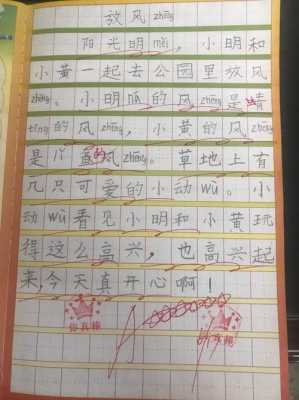 放风zhēng
阳光明mèi，小明和
小黄一起去公园里放风
zhēng。小明的风zhēng是蜻
tíng的风zhēng，小黄的风zhēng
是鱼的风zhēng。草地上有
几只可爱的小动wù。小
动wù看见小明和小黄玩
得这么高兴，也高兴起
来，今天真开心啊！
你真棒
你真棒